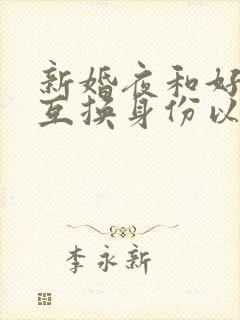 新婚夜和好
互换身份以
李永新